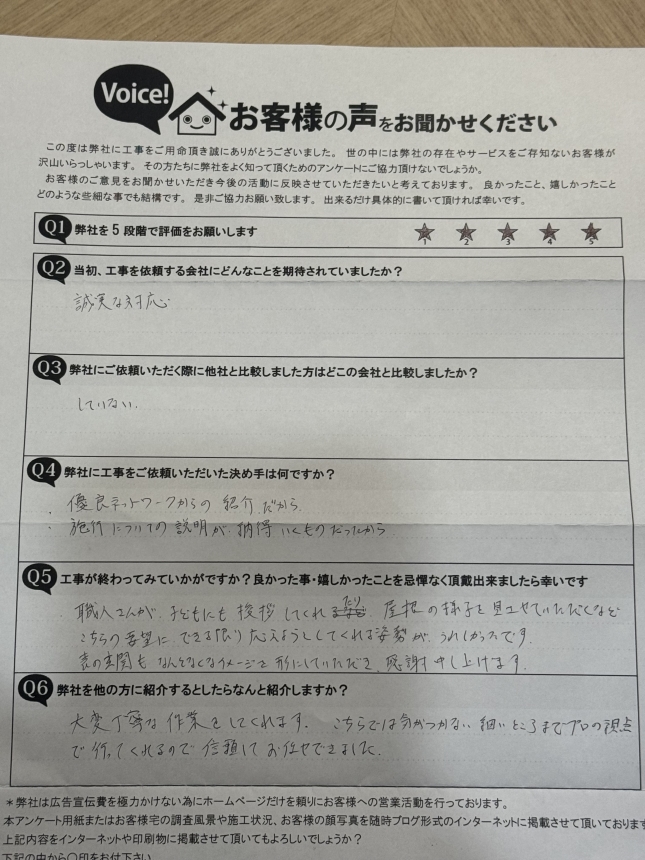 Voice!
お客様の声をお聞かせください
この度は弊社に工事をご用命頂き誠にありがとうございました。 世の中には弊社の存在やサービスをご存知ないお客様が
沢山いらっしゃいます。 その方たちに弊社をよく知って頂くためのアンケートにご協力頂けないでしょうか。
お客様のご意見をお聞かせいただき今後の活動に反映させていただきたいと考えております。 良かったこと、嬉しかったこと
どのような些細な事でも結構です。 是非ご協力お願い致します。 出来るだけ具体的に書いて頂ければ幸いです。
Q1 弊社を5段階で評価をお願いします
1 2 3 4 5
Q2 当初、工事を依頼する会社にどんなことを期待されていましたか?
誠実な対応
Q3 弊社にご依頼いただく際に他社と比較しました方はどこの会社と比較しましたか?
していない。
Q4 弊社に工事をご依頼いただいた決め手は何ですか?
・優良ネットワークからの紹介だから
・施行についての説明が納得いくものだったから
Q5 工事が終わってみていかがですか?良かった事・嬉しかったことを忌憚なく頂戴出来ましたら幸いです
職人さんが、子どもにも挨拶してくれたり 屋根の様子を見させていただくなど
こちらの要望にできる限り応えようとしてくれる姿勢が、うれしかったです。
裏の玄関も なんとなくなイメージを形にしていただき、感謝申し上げます。
Q6 弊社を他の方に紹介するとしたらなんと紹介しますか?
大変丁寧な作業をしてくれます。 こちらでは気がつかない細いところまでプロの視点
で行ってくれるので信頼してお任せできました。
*弊社は広告宣伝費を極力かけない為にホームページだけを頼りにお客様への営業活動を行っております。
本アンケート用紙またはお客様宅の調査風景や施工状況、お客様の顔写真を随時ブログ形式のインターネットに掲載させて頂いております
上記内容をインターネットや印刷物に掲載させて頂いてもよろしいでしょうか?
下記の中から〇印をお付下さい